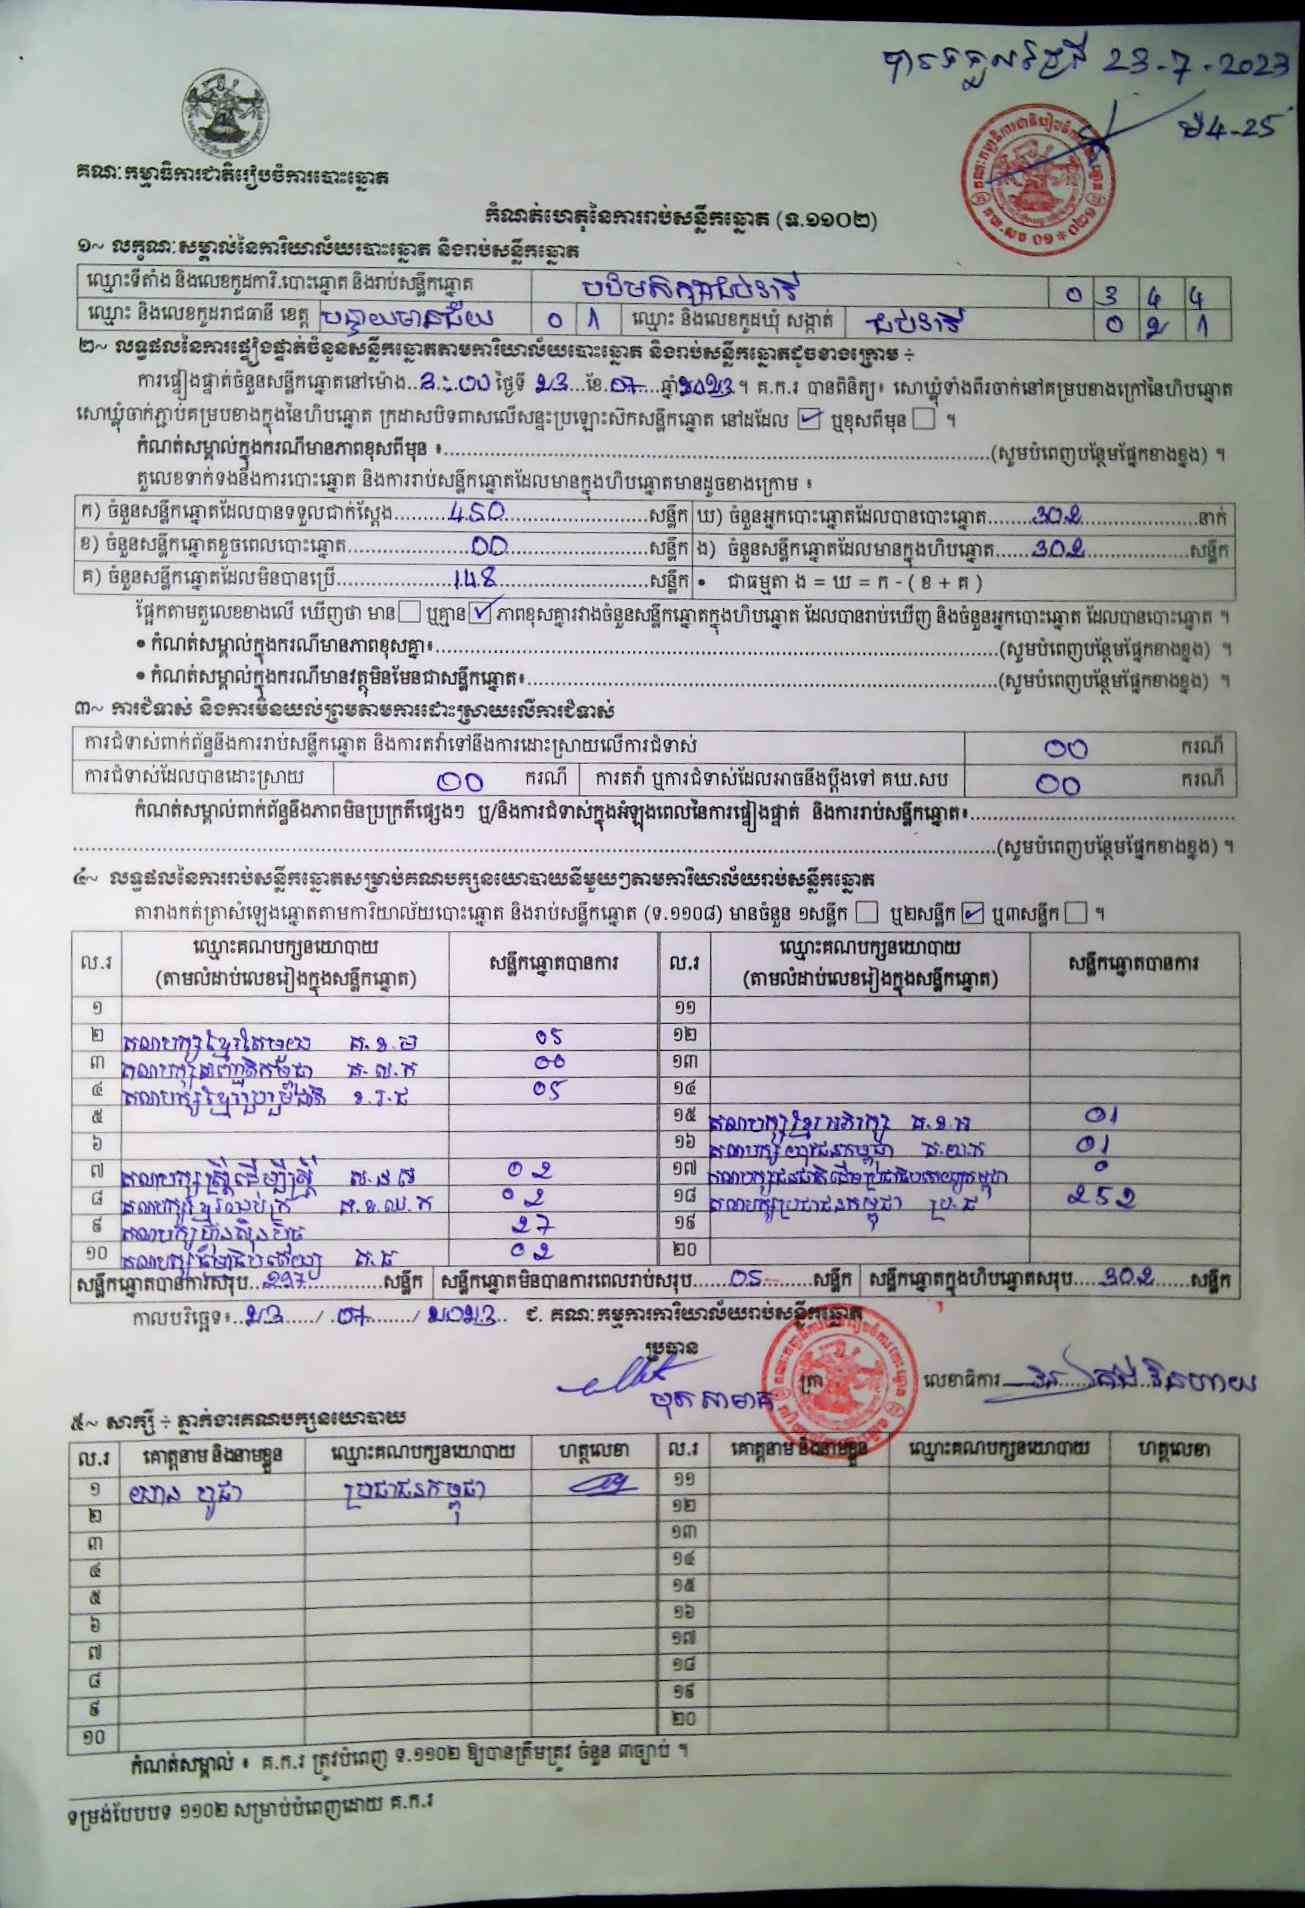 បានទទួលថ្ងៃទី 23-7-2023
ម៉ 4-25
គណៈកម្មាធិការជាតិរៀបចំការបោះឆ្នោត
កំណត់ហេតុនៃការរាប់សន្លឹកឆ្នោត (ទ.១១០២)
១~ លក្ខណៈសម្គាល់នៃការិយាល័យបោះឆ្នោត និងរាប់សន្លឹកឆ្នោត
ឈ្មោះទីតាំង និងលេខកូដការិ.បោះឆ្នោត និងរាប់សន្លឹកឆ្នោត បឋមសិក្សា 0 3 4 4
ឈ្មោះ និងលេខកូដរាជធានី ខេត្ត បន្ទាយមានជ័យ 0 1 ឈ្មោះ និងលេខកូដឃុំ សង្កាត់ 0 2 1
២~ លទ្ធផលនៃការផ្ទៀងផ្ទាត់ចំនួនសន្លឹកឆ្នោតតាមការិយាល័យបោះឆ្នោត និងរាប់សន្លឹកឆ្នោតដូចខាងក្រោម ÷
ការផ្ទៀងផ្ទាត់ចំនួនសន្លឹកឆ្នោតនៅម៉ោង..3:00 ថ្ងៃទី 23...ខែ.07....ឆ្នាំ2023.។ គ.ក.រ បានពិនិត្យ៖ សោឃ្លុំទាំងពីរចាក់នៅគម្របខាងក្រៅនៃហិបឆ្នោត
សោឃ្លុំចាក់ភ្ជាប់គម្របខាងក្នុងនៃហិបឆ្នោត ក្រដាសបិទពាសលើសន្ទះប្រឡោះស៊កសន្លឹកឆ្នោត នៅដដែល ☑ ឬខុសពីមុន ☐ ។
កំណត់សម្គាល់ក្នុងករណីមានភាពខុសពីមុន ៖..........(សូមបំពេញបន្ថែមផ្នែកខាងខ្នង) ។
តួលេខទាក់ទងនឹងការបោះឆ្នោត និងការរាប់សន្លឹកឆ្នោតដែលមានក្នុងហិបឆ្នោតមានដូចខាងក្រោម ៖
ក) ចំនួនសន្លឹកឆ្នោតដែលបានទទួលជាក់ស្តែង.......450.......សន្លឹក ឃ) ចំនួនអ្នកបោះឆ្នោតដែលបានបោះឆ្នោត.......302.......នាក់
ខ) ចំនួនសន្លឹកឆ្នោតខូចពេលបោះឆ្នោត.......00.......សន្លឹក ង) ចំនួនសន្លឹកឆ្នោតដែលមានក្នុងហិបឆ្នោត.......302.......សន្លឹក
គ) ចំនួនសន្លឹកឆ្នោតដែលមិនបានប្រើ.......148.......សន្លឹក • ជាធម្មតា ង = ឃ = ក - ( ខ + គ )
ផ្អែកតាមតួលេខខាងលើ ឃើញថា មាន ☐ ឬគ្មាន ☑ ភាពខុសគ្នារវាងចំនួនសន្លឹកឆ្នោតក្នុងហិបឆ្នោត ដែលបានរាប់ឃើញ និងចំនួនអ្នកបោះឆ្នោត ដែលបានបោះឆ្នោត ។
• កំណត់សម្គាល់ក្នុងករណីមានភាពខុសគ្នា៖..........(សូមបំពេញបន្ថែមផ្នែកខាងខ្នង) ។
• កំណត់សម្គាល់ក្នុងករណីមានវត្ថុមិនមែនជាសន្លឹកឆ្នោត៖..........(សូមបំពេញបន្ថែមផ្នែកខាងខ្នង) ។
៣~ ការជំទាស់ និងការមិនយល់ព្រមតាមការដោះស្រាយលើការជំទាស់
ការជំទាស់ពាក់ព័ន្ធនឹងការរាប់សន្លឹកឆ្នោត និងការតវ៉ាទៅនឹងការដោះស្រាយលើការជំទាស់ 00 ករណី
ការជំទាស់ដែលបានដោះស្រាយ 00 ករណី ការតវ៉ា ឬការជំទាស់ដែលអាចនឹងប្តឹងទៅ គឃ.សប 00 ករណី
កំណត់សម្គាល់ពាក់ព័ន្ធនឹងភាពមិនប្រក្រតីផ្សេងៗ ឬ/និងការជំទាស់ក្នុងអំឡុងពេលនៃការផ្ទៀងផ្ទាត់ និងការរាប់សន្លឹកឆ្នោត៖..........
..........(សូមបំពេញបន្ថែមផ្នែកខាងខ្នង) ។
៤~ លទ្ធផលនៃការរាប់សន្លឹកឆ្នោតសម្រាប់គណបក្សនយោបាយនីមួយៗតាមការិយាល័យរាប់សន្លឹកឆ្នោត
តារាងកត់ត្រាសំឡេងឆ្នោតតាមការិយាល័យបោះឆ្នោត និងរាប់សន្លឹកឆ្នោត (ទ.១១០៨) មានចំនួន ១សន្លឹក ☐ ឬ២សន្លឹក ☑ ឬ៣សន្លឹក ☐ ។
ល.រ ឈ្មោះគណបក្សនយោបាយ (តាមលំដាប់លេខរៀងក្នុងសន្លឹកឆ្នោត) សន្លឹកឆ្នោតបានការ ល.រ ឈ្មោះគណបក្សនយោបាយ (តាមលំដាប់លេខរៀងក្នុងសន្លឹកឆ្នោត) សន្លឹកឆ្នោតបានការ
១ ១១
២ គណបក្សខ្មែរតែមួយ គ.ខ.ម 05 ១២
៣ គណបក្ស គ.ល.ក 00 ១៣
៤ គណបក្សខ្មែររួបរួមជាតិ ខ.រ.ជ 05 ១៤
៥ ១៥ គណបក្សខ្មែរអភិរក្ស គ.ខ.អ 01
៦ ១៦ គណបក្សយុវជនកម្ពុជា គ.យ.ក 01
៧ គណបក្សស្ត្រីដើម្បីស្ត្រី 02 ១៧ គណបក្សជនជាតិដើមប្រជាធិបតេយ្យកម្ពុជា 0
៨ គណបក្សខ្មែរឈប់ក្រ គ.ខ.ឈ.ក 02 ១៨ គណបក្សប្រជាជនកម្ពុជា ប្រ.ជ 252
៩ គណបក្សហ៊្វុនស៊ិនប៉ិច 27 ១៩
១០ គណបក្សធម្មាធិបតេយ្យ គ.ធ 02 ២០
សន្លឹកឆ្នោតបានការសរុប..297.......សន្លឹក សន្លឹកឆ្នោតមិនបានការពេលរាប់សរុប.......05.......សន្លឹក សន្លឹកឆ្នោតក្នុងហិបឆ្នោតសរុប.....302......សន្លឹក
កាលបរិច្ឆេទ៖..23...../ .07......../ 2023.. ជ. គណៈកម្មការការិយាល័យរាប់សន្លឹកឆ្នោត
ប្រធាន
ត្រា លេខាធិការ
៥~ សាក្សី ÷ ភ្នាក់ងារគណបក្សនយោបាយ
ល.រ គោត្តនាម និងនាមខ្លួន ឈ្មោះគណបក្សនយោបាយ ហត្ថលេខា ល.រ គោត្តនាម និងនាមខ្លួន ឈ្មោះគណបក្សនយោបាយ ហត្ថលេខា
១ យាន បូជា ប្រជាជនកម្ពុជា ១១
២ ១២
៣ ១៣
៤ ១៤
៥ ១៥
៦ ១៦
៧ ១៧
៨ ១៨
៩ ១៩
១០ ២០
កំណត់សម្គាល់ ៖ គ.ក.រ ត្រូវបំពេញ ទ.១១០២ ឱ្យបានត្រឹមត្រូវ ចំនួន ៣ច្បាប់ ។
ទម្រង់បែបបទ ១១០២ សម្រាប់បំពេញដោយ គ.ក.រ